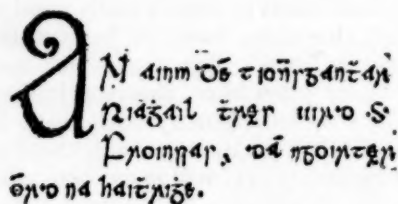 AN ainm Dē tioñsganṫar
Riaġail ṫreas uird .S.
Froinsias, dā ngoirtear
ōrd na haiṫriġe.